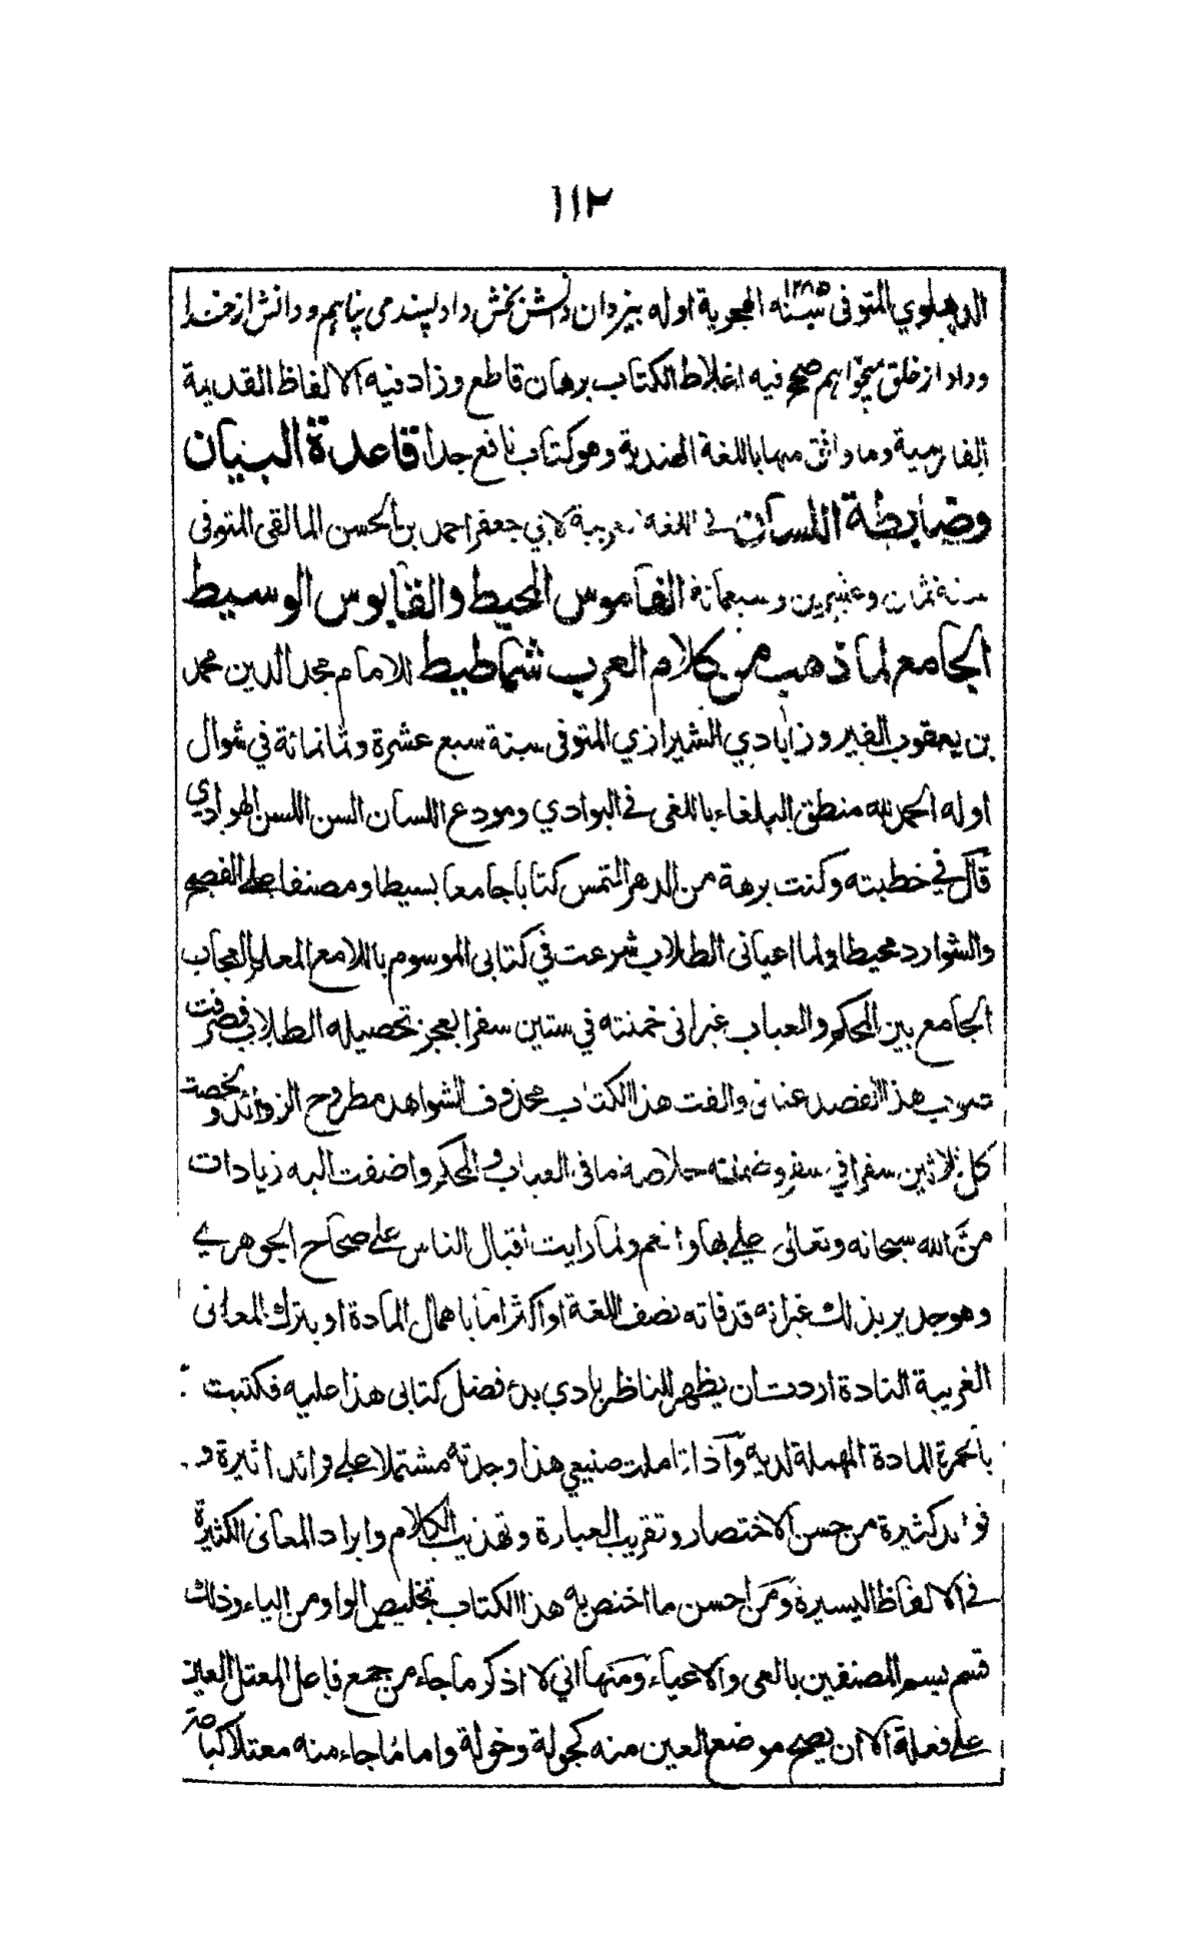 ١١٢
الدهلوي المتوفى سنة ١٢٨٥ الهجرية اوله بيزدان دانش بخش داد پسند می پناهم و دانش از خدا
و داد از خلق میخواهم صحح فيه اغلاط الكتاب برهان قاطع وزاد فيه الالفاظ القديمة
الفارسية وما وافق منها باللغة الهندية وهو كتاب نافع جدا قاعدة البنيان
وضابطة اللسان في اللغة العربية لابي جعفر احمد بن الحسن المالقى المتوفى
سنة ثمان وعشرين وسبعمائة القاموس المحيط والقابوس الوسيط
الجامع لما ذهب من كلام العرب شماطيط للامام مجد الدين محمد
بن يعقوب الفيروزابادي الشيرازي المتوفى سنة سبع عشرة وثمانمائة في شوال
اوله الحمد لله منطق البلغاء باللغى في البوادي ومودع اللسان السن اللسن الهوادي
قال في خطبته وكنت برهة من الدهر التمس كتابا جامعا بسيطا ومصنفا على الفصح
والشوارد محيطا ولما اعيانى الطلاب شرعت في كتابى الموسوم باللامع المعلم العجاب
الجامع بين المحكم والعباب غير انى خمنته في ستين سفرا يعجز تحصيله الطلاب فصرفت
صوب هذا القصد عنانى والفت هذا الكتاب محذوف الشواهد مطروح الزوائد ولخصت
كل ثلاثين سفرا في سفر وضمنته خلاصة ما فى العباب والمحكم واضفت اليه زيادات
من الله سبحانه وتعالى علي بها وانعم ولما رايت اقبال الناس على صحاح الجوهري
وهو جدير بذلك غير انه قد فاته نصف اللغة او اكثر اما باهمال المادة او بترك المعانى
الغريبة النادة اردت ان يظهر للناظر بادي بدء فضل كتابى هذا عليه فكتبت
بالحمرة المادة المهملة لديه وآذا تاملت صنيعي هذا وجدته مشتملا على فرائد اثيرة و
فوائد كثيرة من حسن الاختصار وتقريب العبارة وتهذيب الكلام وايراد المعانى الكثيرة
في الالفاظ اليسيرة ومن احسن ما اختص به هذا الكتاب تخليص الواو من الياء وذلك
قسم يسم المصنفين بالعى والاعياء ومنها اني لا اذكر ما جاء من جمع فاعل المعتل العين
على فعلة الا ان يصح موضع العين منه كجولة وخولة واما ما جاء منه معتلا كباعة